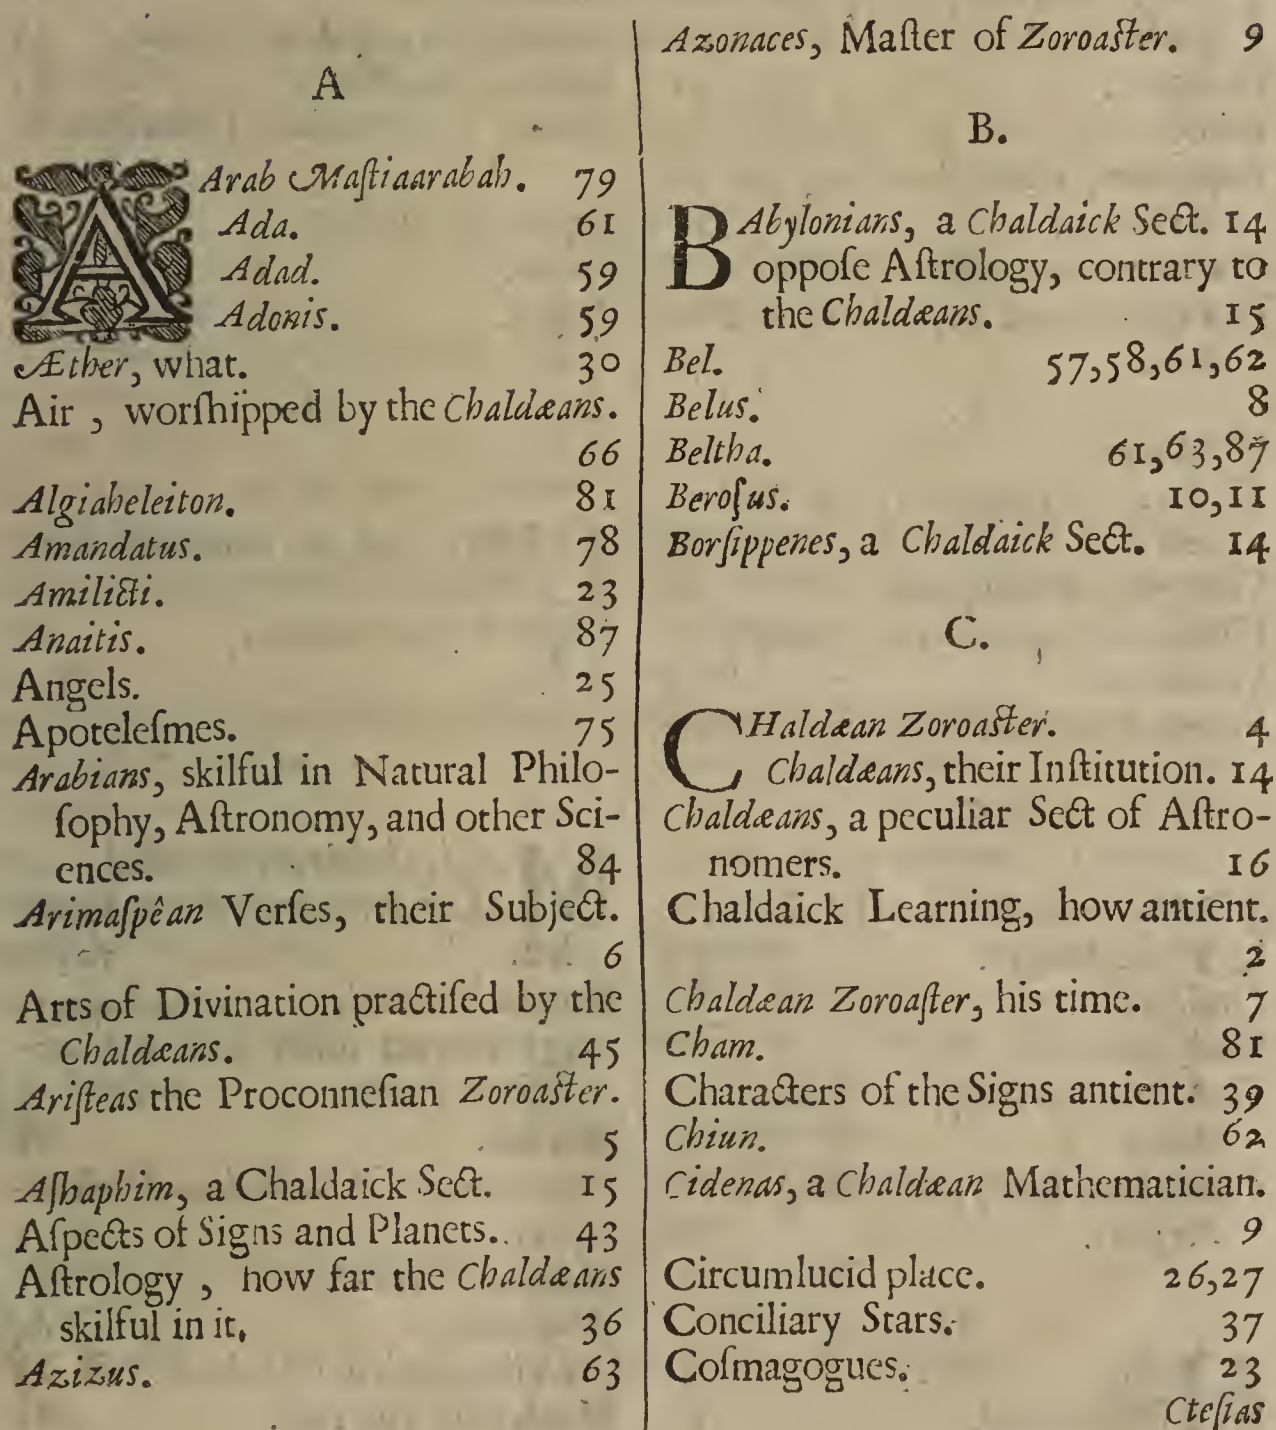 A
AArab Maſtiaarabah. 79
Ada. 61
Adad. 59
Adonis. 59
Æther, what. 30
Air, worſhipped by the Chaldæans.
66
Algiaheleiton. 81
Amandatus. 78
Amilicti. 23
Anaitis. 87
Angels. 25
Apoteleſmes. 75
Arabians, skilful in Natural Philo-
ſophy, Aſtronomy, and other Sci-
ences. 84
Arimaſpêan Verſes, their Subject.
6
Arts of Divination practiſed by the
Chaldæans. 45
Ariſteas the Proconneſian Zoroaſter.
5
Aſhaphim, a Chaldaick Sect. 15
Aſpects of Signs and Planets. 43
Aſtrology, how far the Chaldæans
skilful in it, 36
Azizus. 63
Azonaces, Maſter of Zoroaſter. 9
B.
BAbylonians, a Chaldaick Sect. 14
oppoſe Aſtrology, contrary to
the Chaldæans. 15
Bel. 57,58,61,62
Belus. 8
Beltha. 61,63,87
Beroſus. 10,11
Borſippenes, a Chaldaick Sect. 14
C.
CHaldæan Zoroaſter. 4
Chaldæans, their Inſtitution. 14
Chaldæans, a peculiar Sect of Aſtro-
nomers. 16
Chaldaick Learning, how antient.
2
Chaldæan Zoroaſter, his time. 7
Cham. 81
Characters of the Signs antient. 39
Chiun. 62
Cidenas, a Chaldæan Mathematician.
9
Circumlucid place. 26,27
Conciliary Stars. 37
Coſmagogues. 23
Cteſias